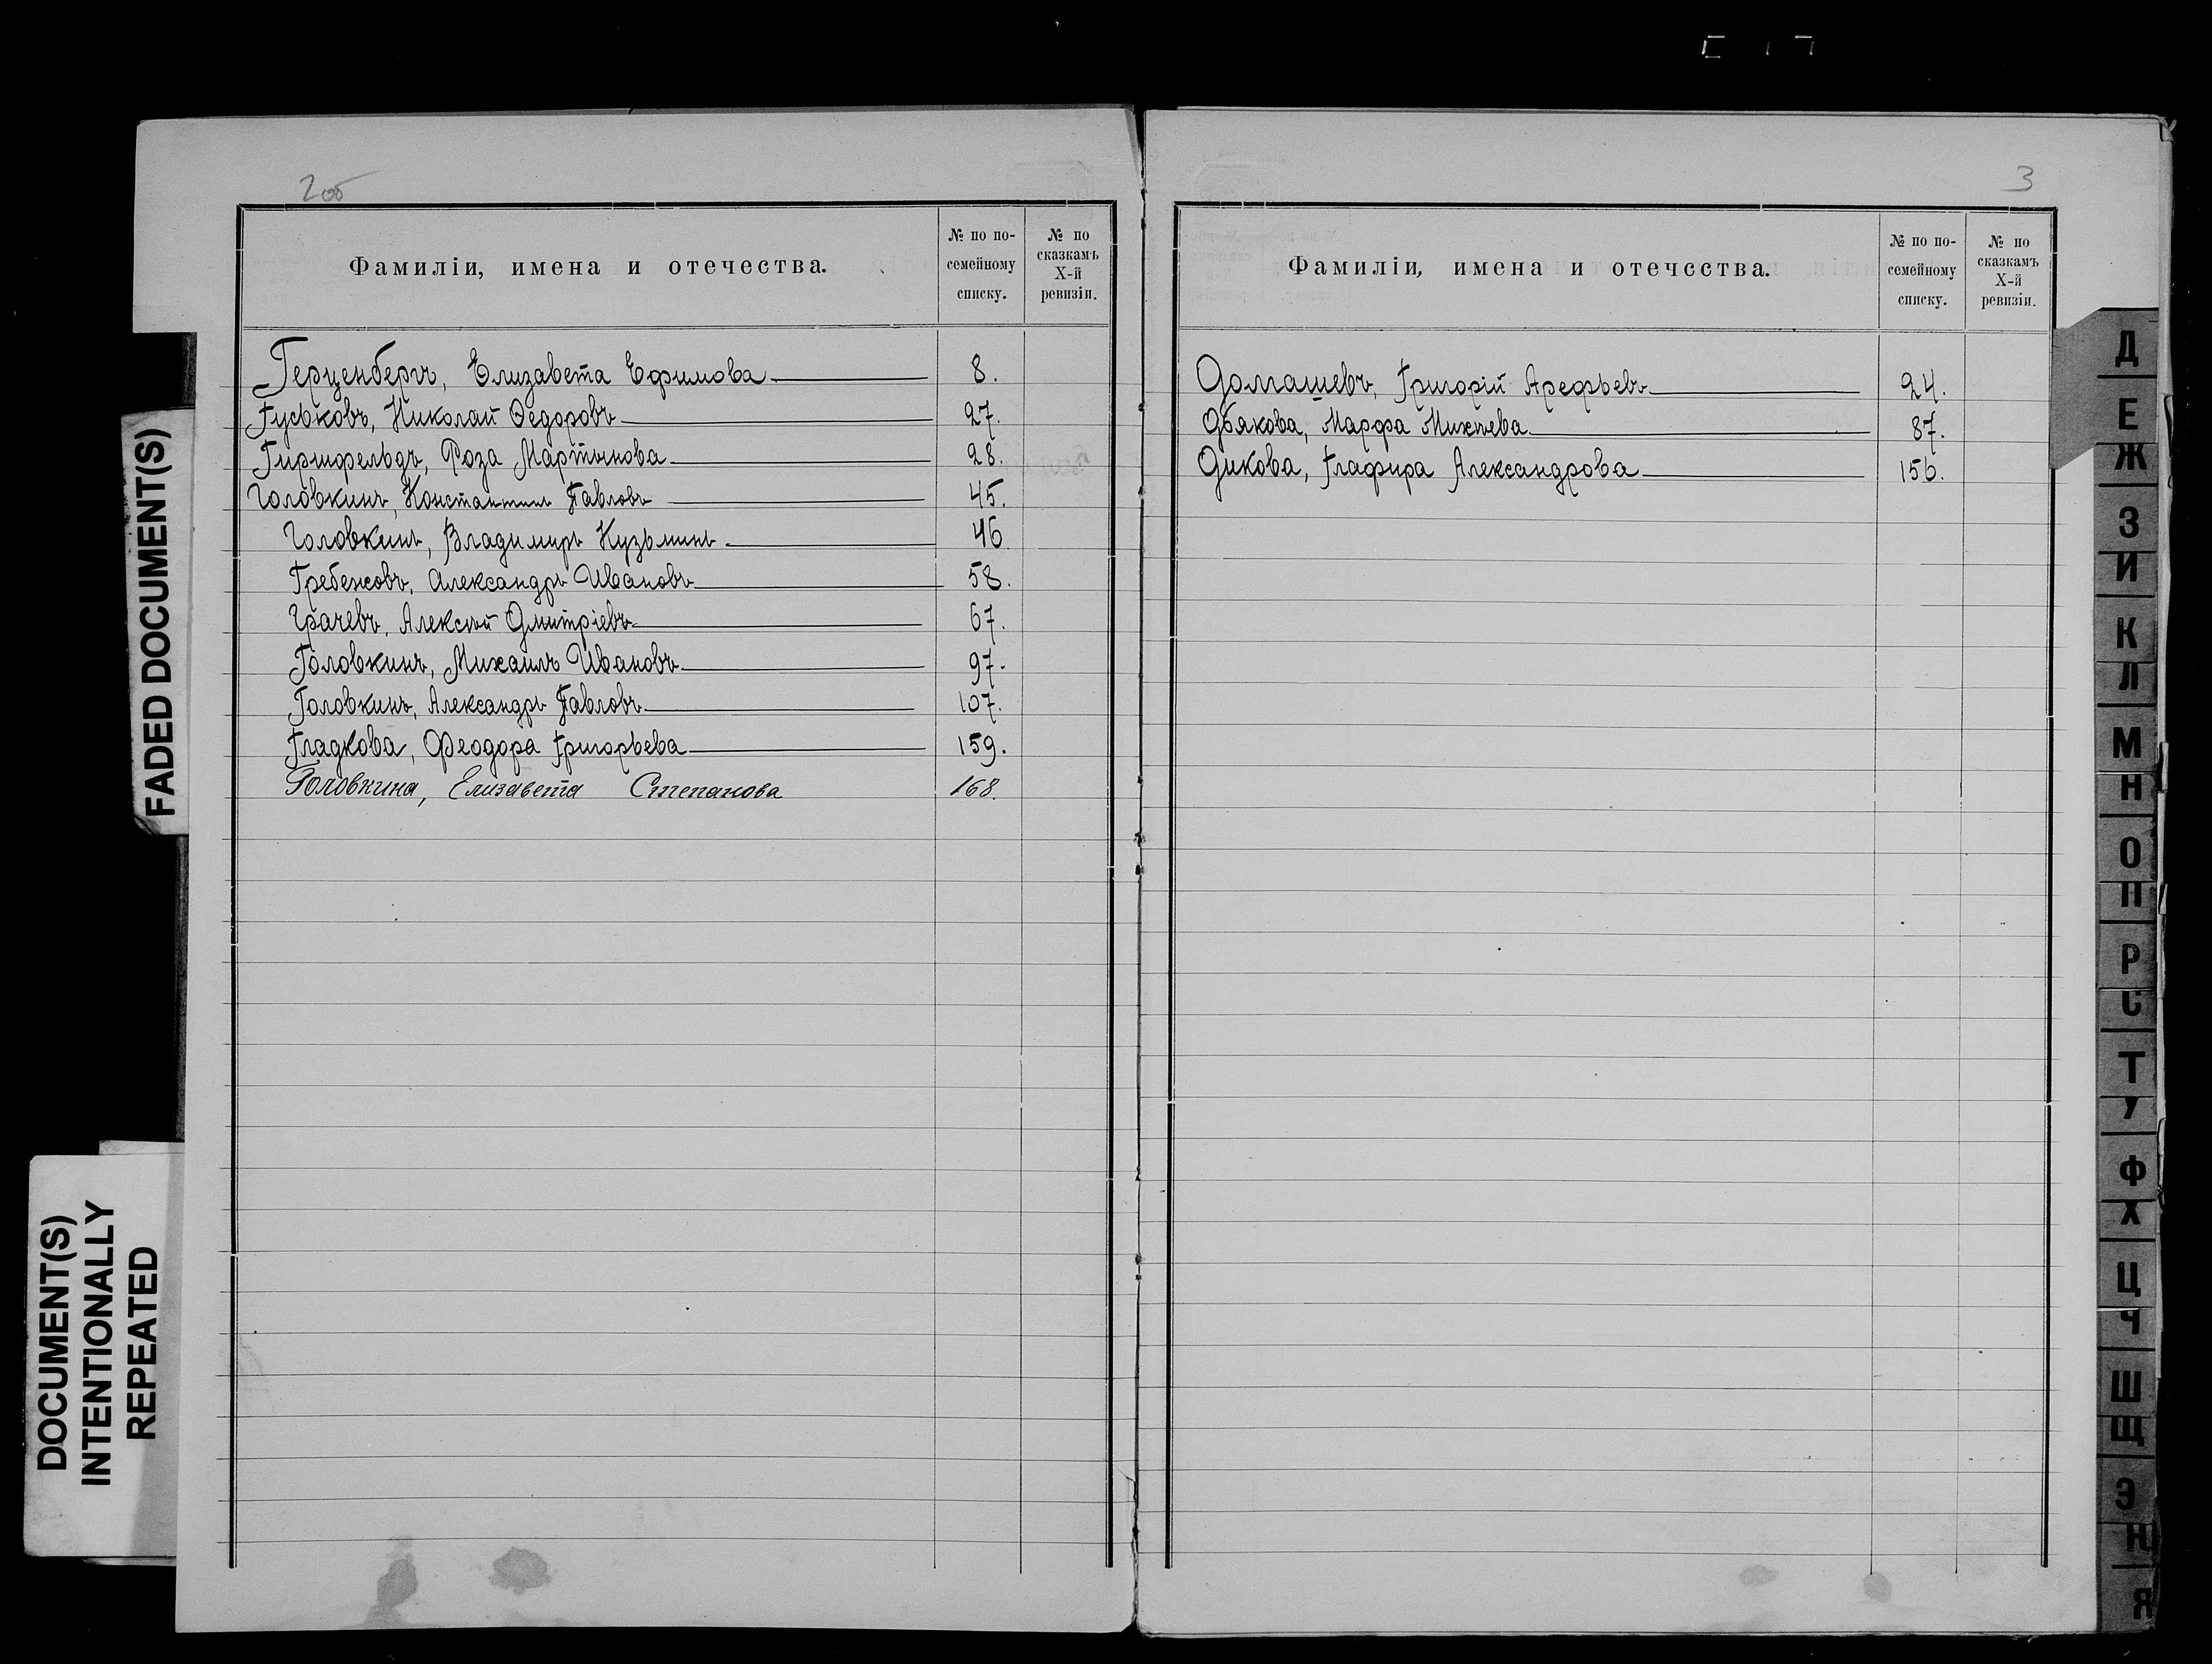 2об
Фамиліи, имена и отечества.
№ по по-
семейному
списку.
№ по
сказкамъ
X-й
ревизіи.
Герценбергъ, Елизавета Ефимова 8.
Гуськовъ, Николай Ѳедоровъ 27.
Гиршфельдъ, Роза Мартынова 28.
Головкинъ, Константинъ Павловъ 45.
Головкинъ, Владимиръ Кузьминъ 46
Гребенсовъ, Александръ Ивановъ 58.
Грачевъ, Алексѣй Дмитріевъ 67.
Головкинъ, Михаилъ Ивановъ 97.
Головкинъ, Александръ Павловъ 107.
Гладкова, Феодора Григорьева 159.
Головкина, Елизавета Степанова 168.
3
Фамиліи, имена и отечества.
№ по по-
семейному
списку.
№ по
сказкамъ
X-й
ревизіи.
Домашевъ, Григорій Арефьевъ 24.
Дьякова, Марфа Михѣева 87.
Дикова, Глафира Александрова 156.
Д
Е
Ж
З
И
К
Л
М
Н
О
П
Р
С
Т
У
Ф
Х
Ц
Ч
Ш
Щ
Э
Я
FADED DOCUMENT(S)
DOCUMENT(S)
INTENTIONALLY
REPEATED